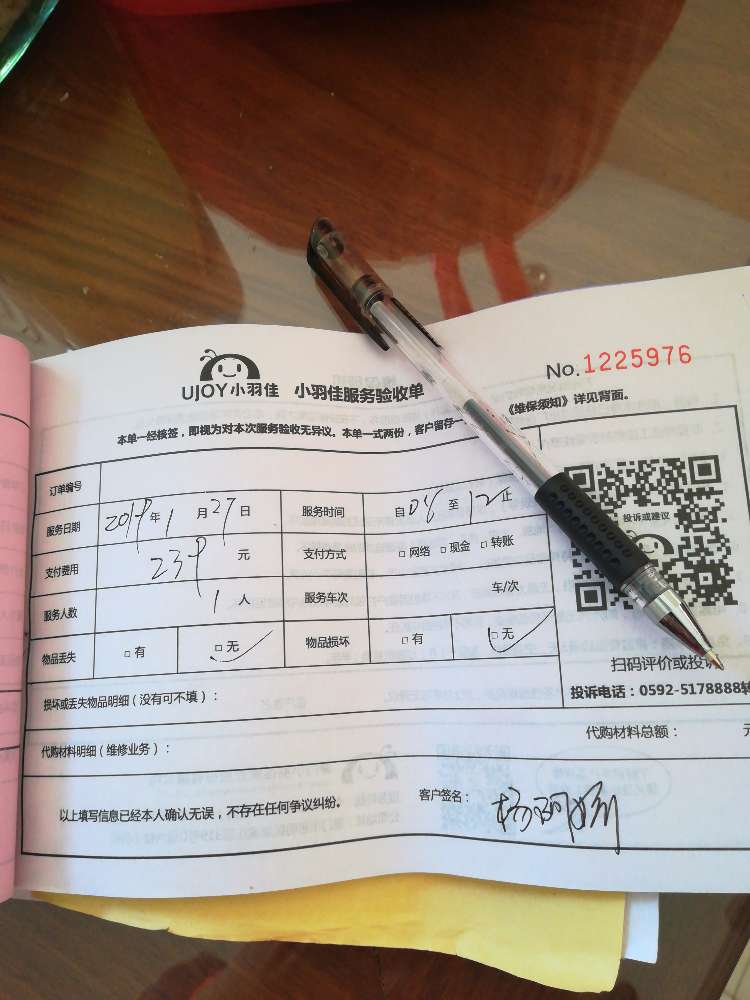 UJOY小羽佳 小羽佳服务验收单
No.1225976
本单一经核签，即视为对本次服务验收无异议。本单一式两份，客户留存一
《维保须知》详见背面。
订单编号
服务日期 2019年1月27日 服务时间 自08至12止
支付费用 239元 支付方式 □网络 □现金 □转账
服务人数 1人 服务车次 车/次
物品丢失 □有 □无 物品损坏 □有 □无
投诉或建议
扫码评价或投诉
投诉电话：0592-5178888转
损坏或丢失物品明细（没有可不填）：
代购材料明细（维修业务）： 代购材料总额：
以上填写信息已经本人确认无误，不存在任何争议纠纷。 客户签名：